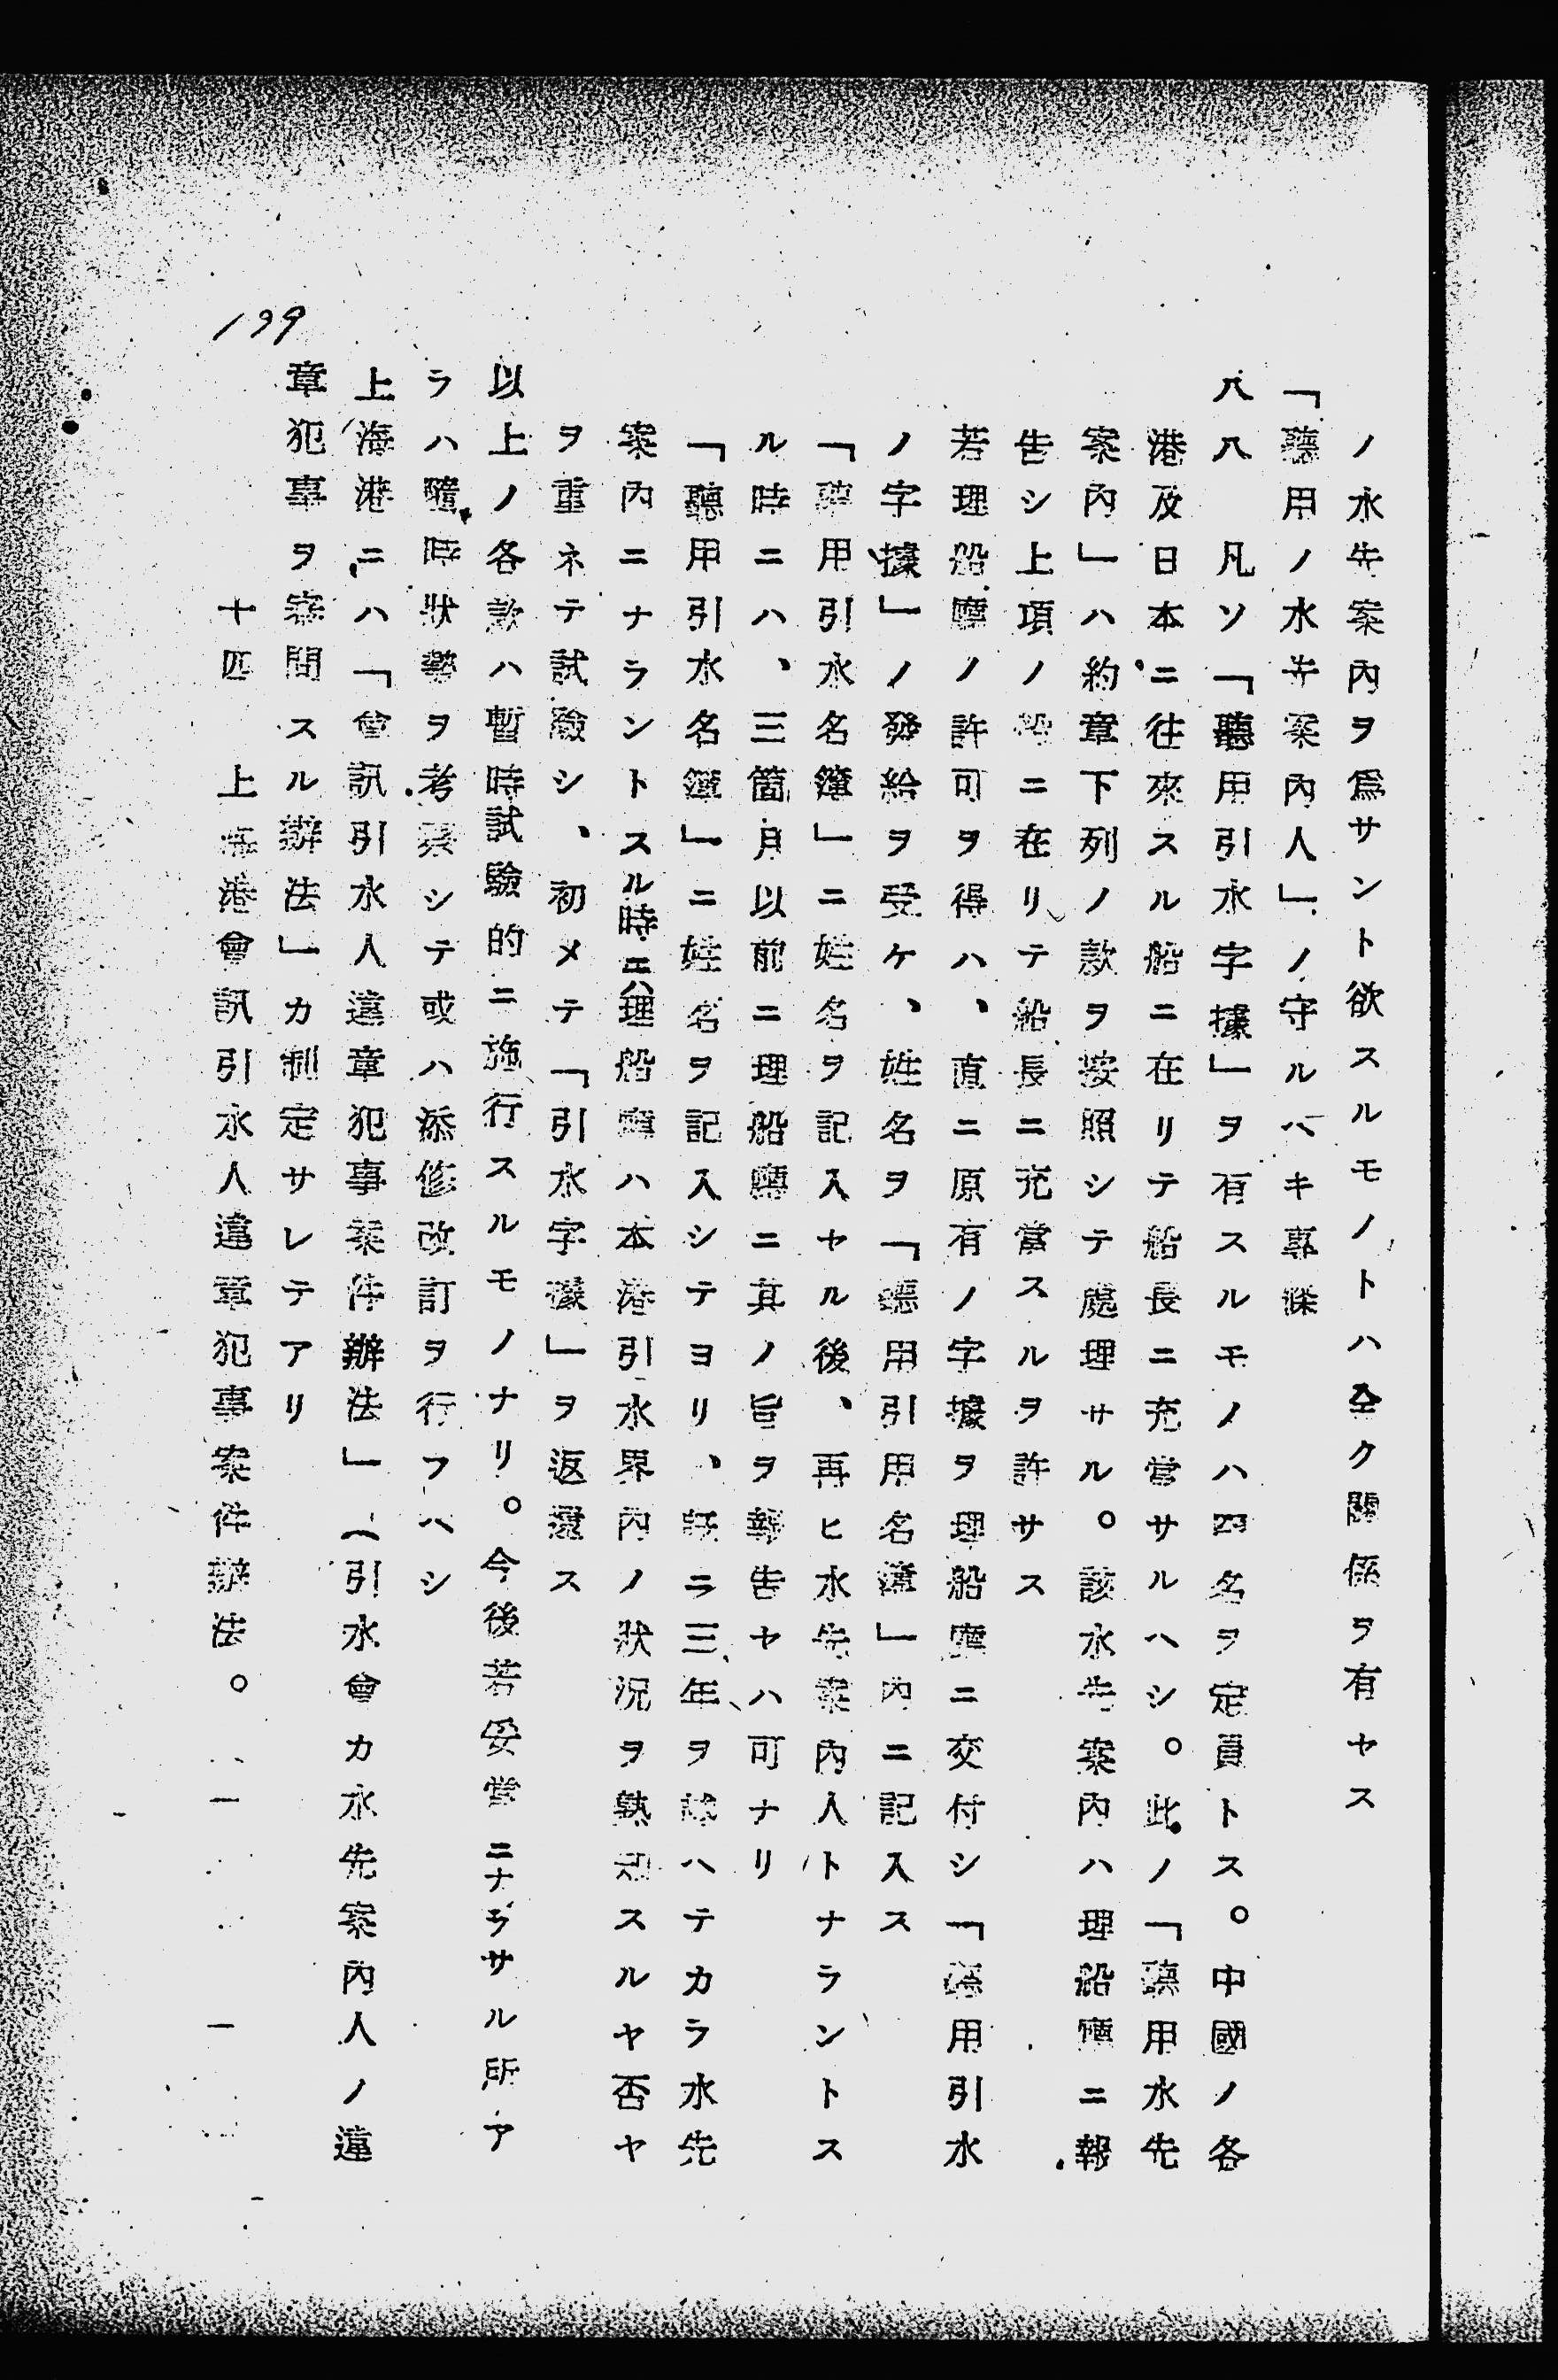 ノ水先案內ヲ爲サント欲スルモノトハ全ク關係ヲ有セス
「聽用ノ水先案內人」ノ守ルヘキ事條
八八 凡ソ「聽用引水字據」ヲ有スルモノハ四名ヲ定員トス。中國ノ各
港及日本ニ往來スル船ニ在リテ船長ニ充當サルヘシ。此ノ「聽用水先
案內」ハ約章下列ノ款ヲ按照シテ處理サル。該水先案內ハ理船廳ニ報
告シ上項ノ船ニ在リテ船長ニ充當スルヲ許サス
若理船廳ノ許可ヲ得ハ、直ニ原有ノ字據ヲ理船廳ニ交付シ「聽用引水
ノ字據」ノ發給ヲ受ケ、姓名ヲ「聽用引用名簿」內ニ記入ス
「聽用引水名簿」ニ姓名ヲ記入セル後、再ヒ水先案內人トナラントス
ル時ニハ、三箇月以前ニ理船廳ニ其ノ旨ヲ報告セハ可ナリ
「聽用引水名簿」ニ姓名ヲ記入シテヨリ、既ニ三年ヲ經ヘテカラ水先
案內ニナラントスル時ニハ理船廳ハ本港引水界內ノ狀況ヲ熟知スルヤ否ヤ
ヲ重ネテ試驗シ、初メテ「引水字據」ヲ返還ス
以上ノ各款ハ暫時試驗的ニ施行スルモノナリ。今後若妥當ニナラサル所ア
ラハ隨時狀勢ヲ考察シテ或ハ添修改訂ヲ行フヘシ
上海港ニハ「會訊引水人違章犯事案件辦法」(引水會カ水先案內人ノ違
章犯事ヲ審問スル辦法」カ制定サレテアリ
十四 上海港會訊引水人違章犯事案件辦法。
199